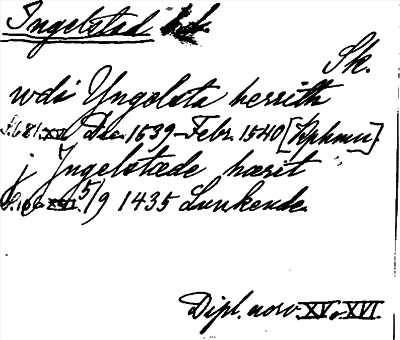 Ingelstad hd.
Sk.
wdi Yngelsta herrith
S. 681. XV. Dec. 1539-Febr. 1540 [Kphmn].
j Jngelstæde hærit
S. 106 XVI. 5/9 1435 Lunkende.
Dipl. norv. XV o. XVI.